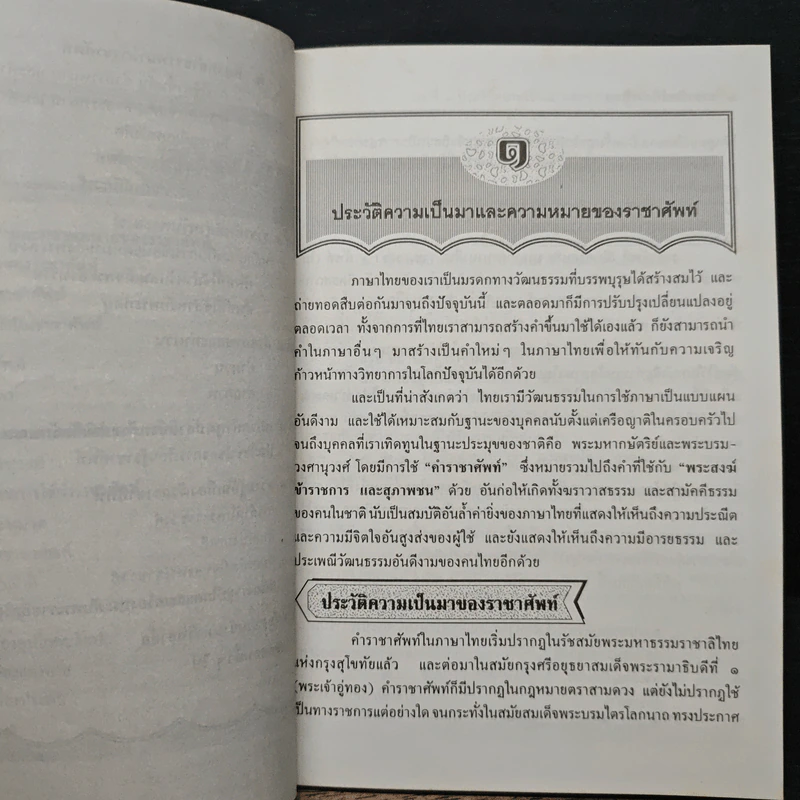 ๑
ประวัติความเป็นมาและความหมายของราชาศัพท์
ภาษาไทยของเราเป็นมรดกทางวัฒนธรรมที่บรรพบุรุษได้สร้างสมไว้ และ
ถ่ายทอดสืบต่อกันมาจนถึงปัจจุบันนี้ และตลอดมาก็มีการปรับปรุงเปลี่ยนแปลงอยู่
ตลอดเวลา ทั้งจากการที่ไทยเราสามารถสร้างคำขึ้นมาใช้ได้เองแล้ว ก็ยังสามารถนำ
คำในภาษาอื่นๆ มาสร้างเป็นคำใหม่ๆ ในภาษาไทยเพื่อให้ทันกับความเจริญ
ก้าวหน้าทางวิทยาการในโลกปัจจุบันได้อีกด้วย
และเป็นที่น่าสังเกตว่า ไทยเรามีวัฒนธรรมในการใช้ภาษาเป็นแบบแผน
อันดีงาม และใช้ได้เหมาะสมกับฐานะของบุคคลนับตั้งแต่เครือญาติในครอบครัวไป
จนถึงบุคคลที่เราเทิดทูนในฐานะประมุขของชาติคือ พระมหากษัตริย์และพระบรม-
วงศานุวงศ์ โดยมีการใช้ “คำราชาศัพท์” ซึ่งหมายรวมไปถึงคำที่ใช้กับ “พระสงฆ์
ข้าราชการ และสุภาพชน” ด้วย อันก่อให้เกิดทั้งฆราวาสธรรม และสามัคคีธรรม
ของคนในชาติ นับเป็นสมบัติอันล้ำค่ายิ่งของภาษาไทยที่แสดงให้เห็นถึงความประณีต
และความมีจิตใจอันสูงส่งของผู้ใช้ และยังแสดงให้เห็นถึงความมีอารยธรรม และ
ประเพณีวัฒนธรรมอันดีงามของคนไทยอีกด้วย
ประวัติความเป็นมาของราชาศัพท์
คำราชาศัพท์ในภาษาไทยเริ่มปรากฏในรัชสมัยพระมหาธรรมราชาลิไทย
แห่งกรุงสุโขทัยแล้ว และต่อมาในสมัยกรุงศรีอยุธยาสมเด็จพระรามาธิบดีที่ ๑
(พระเจ้าอู่ทอง) คำราชาศัพท์ก็มีปรากฏในกฎหมายตราสามดวง แต่ยังไม่ปรากฏใช้
เป็นทางราชการแต่อย่างใด จนกระทั่งในสมัยสมเด็จพระบรมไตรโลกนาถ ทรงประกาศ